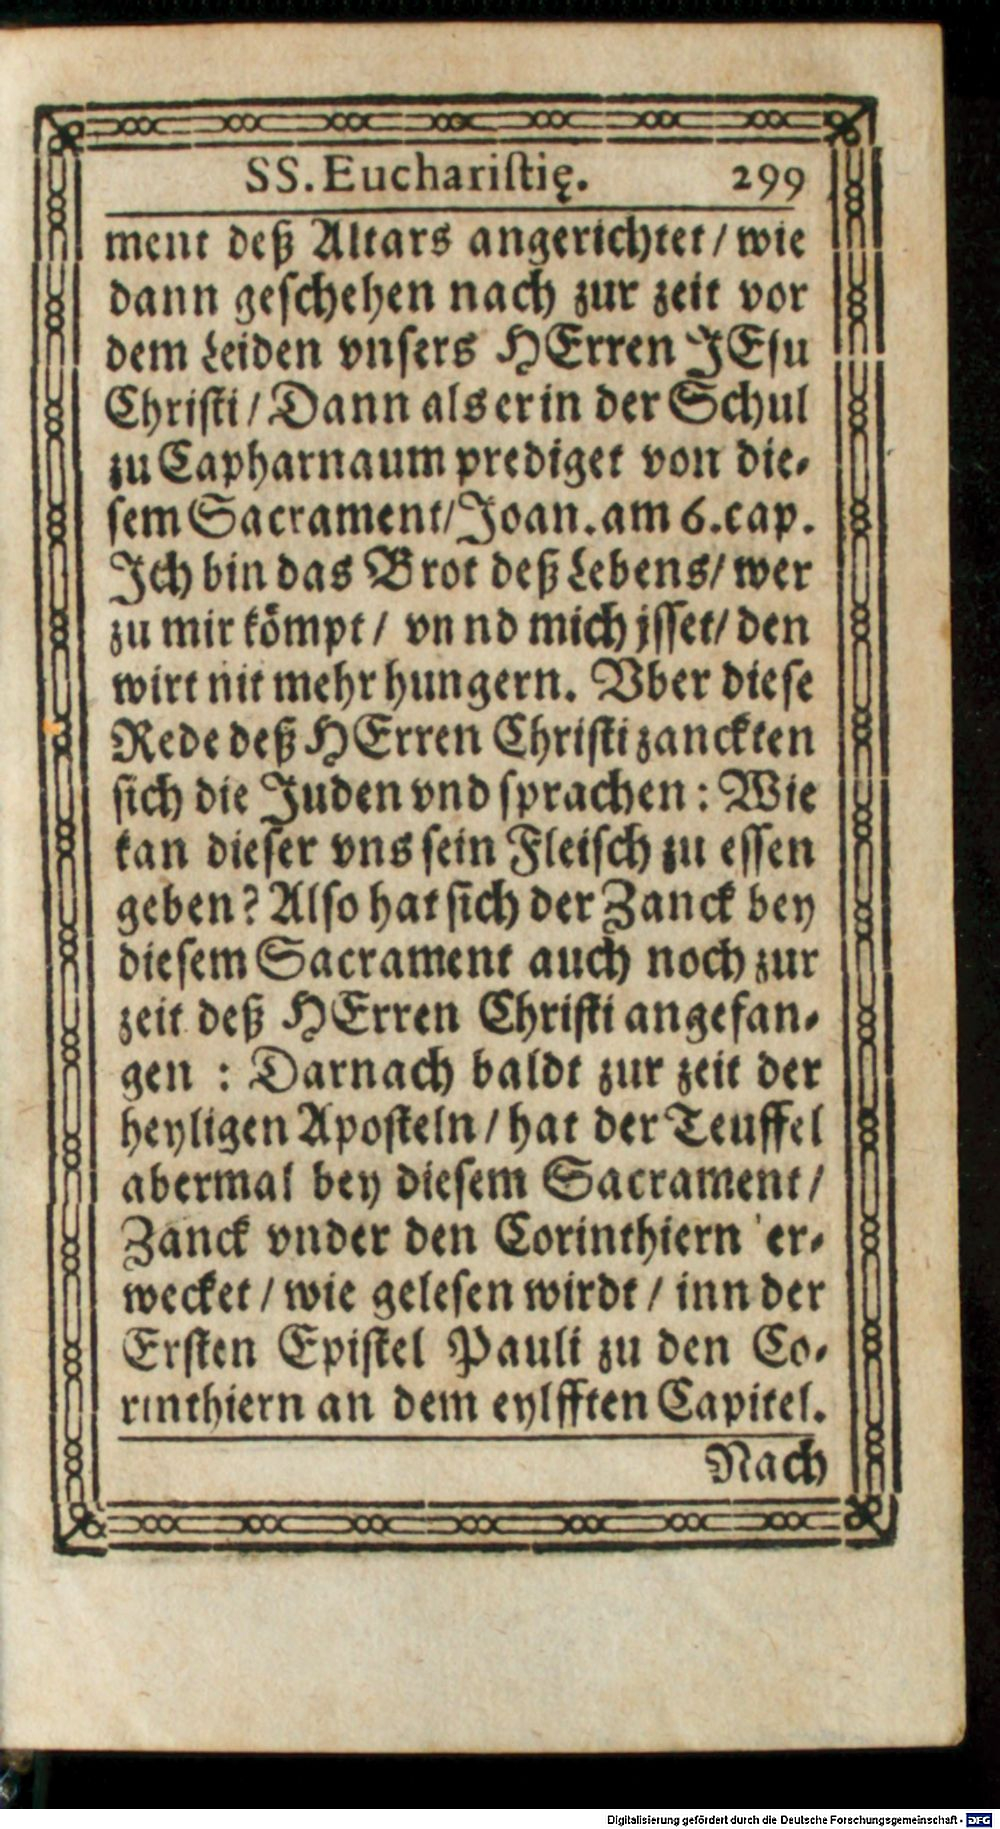 SS. Euchariſtię. 299
ment deß Altars angerichtet / wie
dann geſchehen nach zur zeit vor
dem Leiden vnſers HErren JEſu
Chriſti / Dann als er in der Schul
zu Capharnaum prediget von die-
ſem Sacrament / Joan. am 6. cap.
Ich bin das Brot deß Lebens / wer
zu mir kömpt / vnnd mich jſſet / den
wirt nit mehr hungern. Vber diese
Rede deß HErren Chriſti zanckten
ſich die Juden vnd ſprachen : Wie
kan dieſer vns ſein Fleiſch zu eſſen
geben? Alſo hat ſich der Zanck bey
dieſem Sacrament auch noch zur
zeit deß HErren Chriſti angefan-
gen : Darnach baldt zur zeit der
heyligen Apoſteln / hat der Teuffel
abermal bey dieſem Sacrament /
Zanck vnder den Corinthiern er-
wecket / wie geleſen wirdt / inn der
Erſten Epiſtel Pauli zu den Co-
rinthiern an dem eylfften Capitel.
Nach
Digitalisierung gefördert durch die Deutsche Forschungsgemeinschaft - DFG